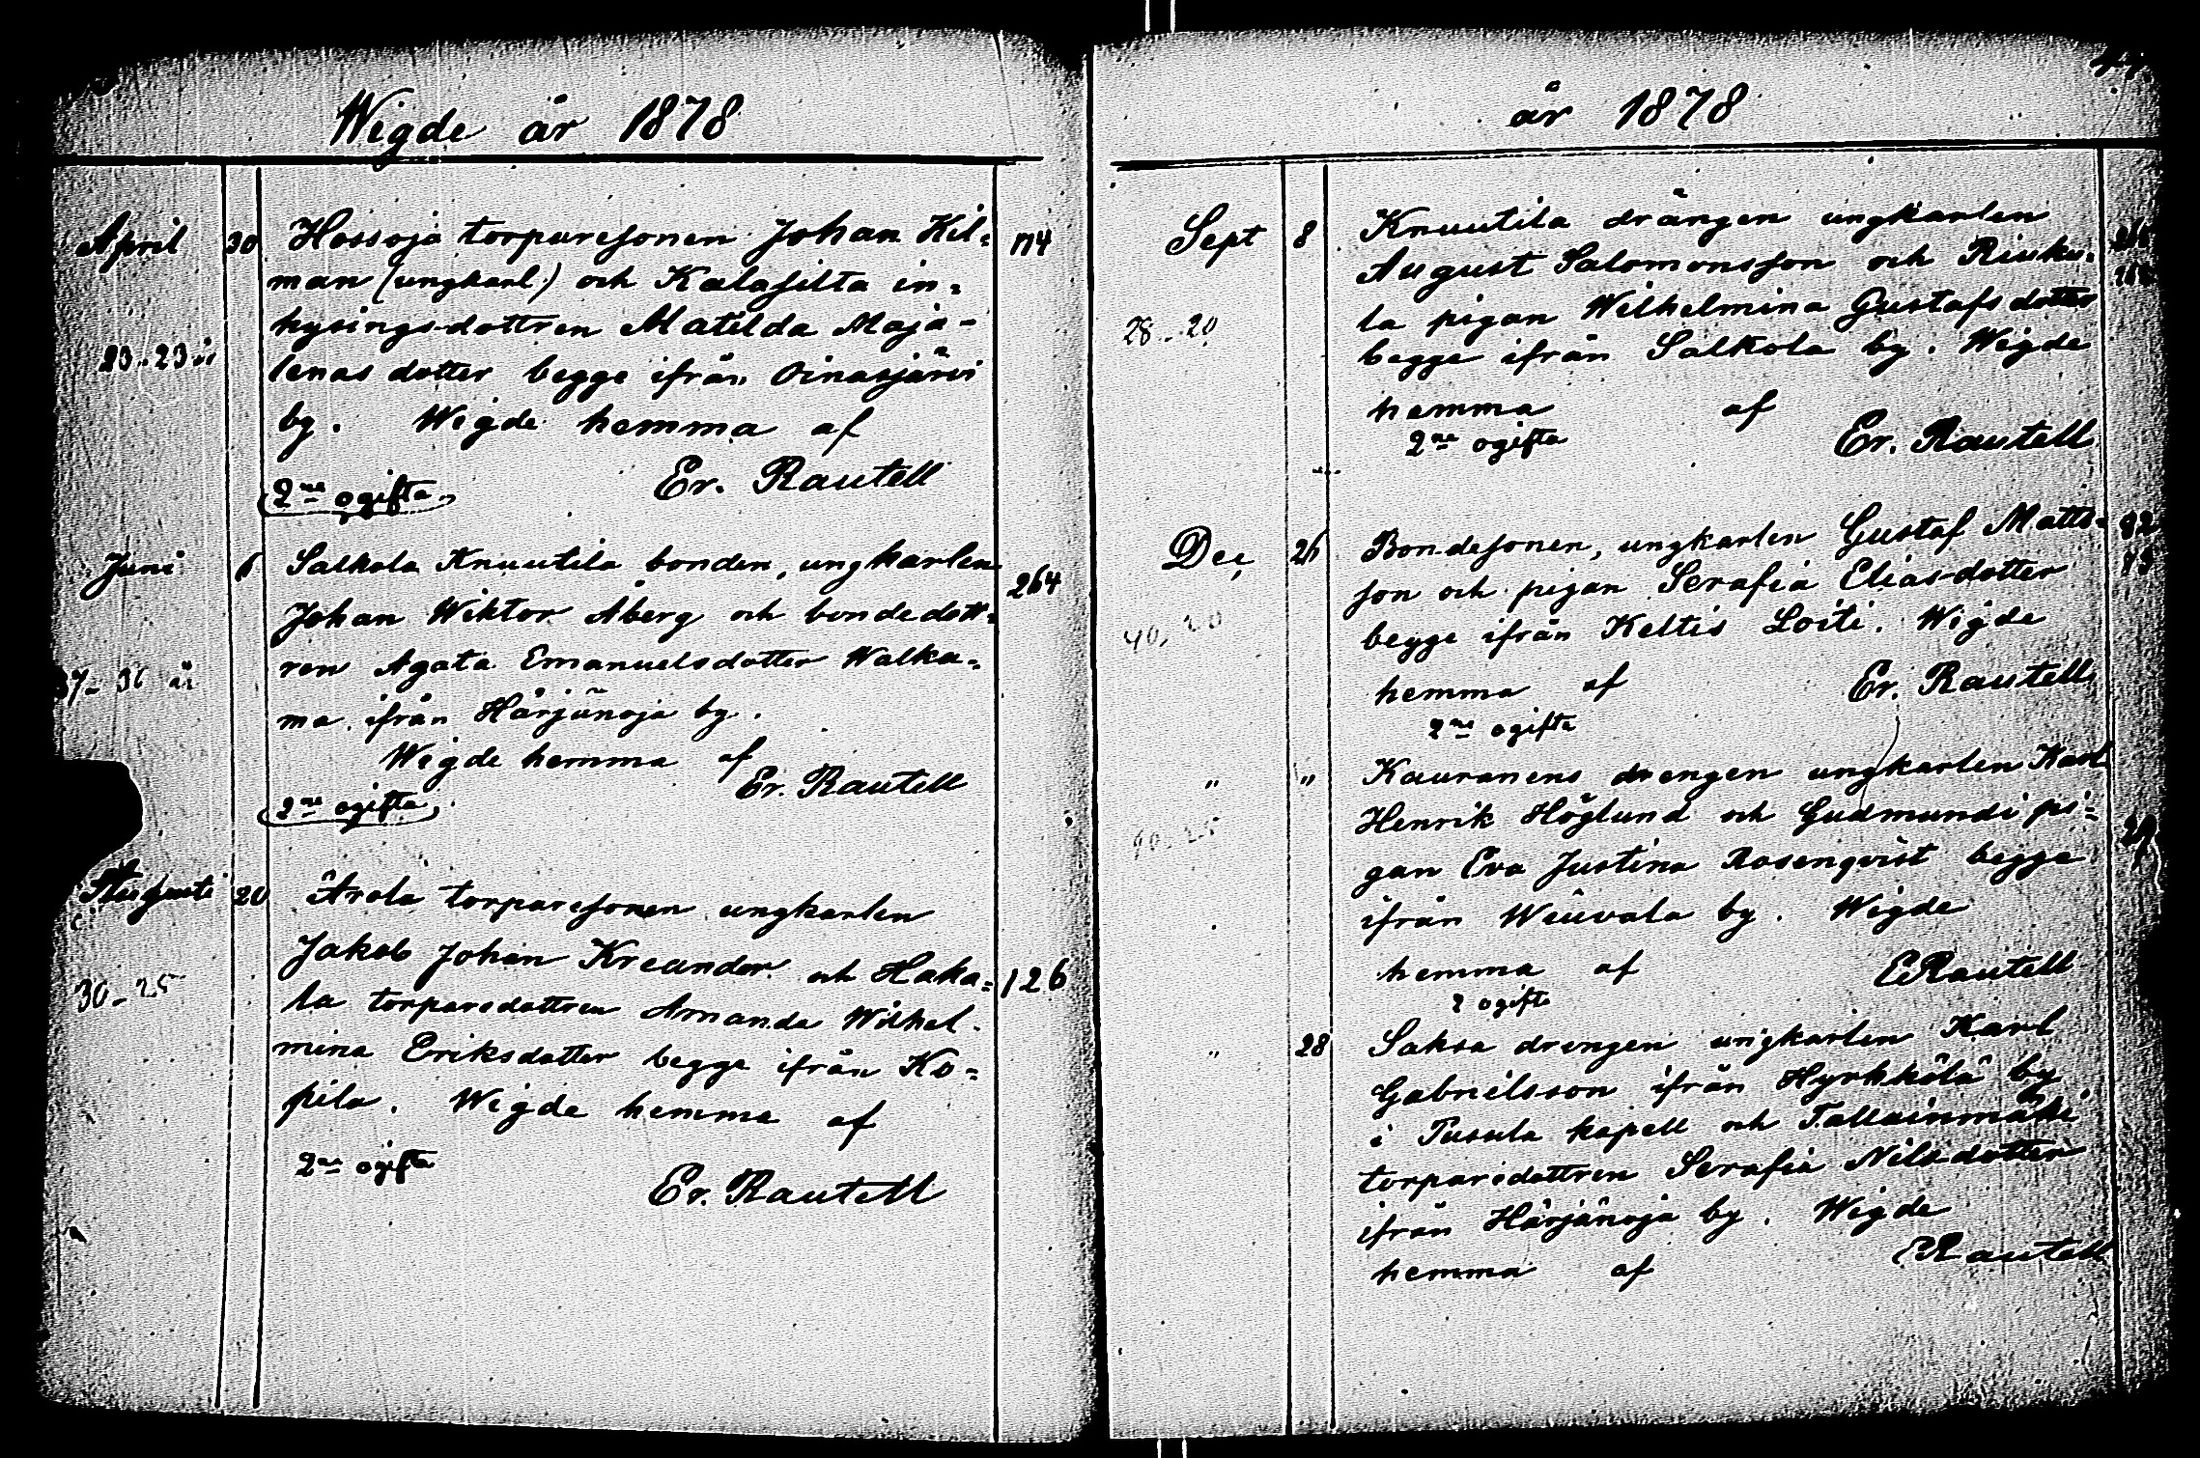 Wigde år 1878
April 30 Hossoja torparesonen Johan Kil= 114
man (ungkarl) och Kalasilta in=
hysingsdottren Matilda Maja-
23-23 år lenas dotter begge ifrån Oinasjärvi
by. Wigde hemma af
2ne ogifta Er. Rautell
Juni 6 Salkola Knuutila bonden, ungkarlen 264
Johan Wiktor Åberg och bondedott=
ren Agata Emanuelsdotter Walka=
37-36 år ma ifrån Härjänoja by.
Wigde hemma af
2ne ogifta Er. Rautell
20 Arola torparesonen ungkarlen
Jakob Johan Kreander och Haka= 126
30-25 la torparedottren Amanda Wilhel-
mina Eriksdotter begge ifrån Ko=
pila. Wigde hemma af
2ne ogifta
Er. Rautell
år 1878
Sept 8 Knuutila drängen ungkarlen
August Salomonsson och Riuku=
28-20 la pigan Wilhelmina Gustafsdotter
begge ifrån Salkola by. Wigde
hemma af
2ne ogifta Er. Rautell
Dec, 26 Bondesonen, ungkarlen Gustaf Matts= 82
son och pigan Serafia Eliasdotter
begge ifrån Keltis Loiti. Wigde
hemma af Er. Rautell
2ne ogifta
" " Kauranens drengen ungkarlen Karl
Henrik Höglund och Gudmundi pi=
gan Eva Justina Rosenqvist begge
ifrån Weuvala by. Wigde
hemma af E Rautell
2 ogifta
" 28 Saksa drengen ungkarlen Karl
Gabrielsson ifrån Hyrkkölä by
i Pusula kapell och Tallainmäki
torparedottren Serafia Nilsdotter
ifrån Härjänoja by. Wigde
hemma af E Rautell